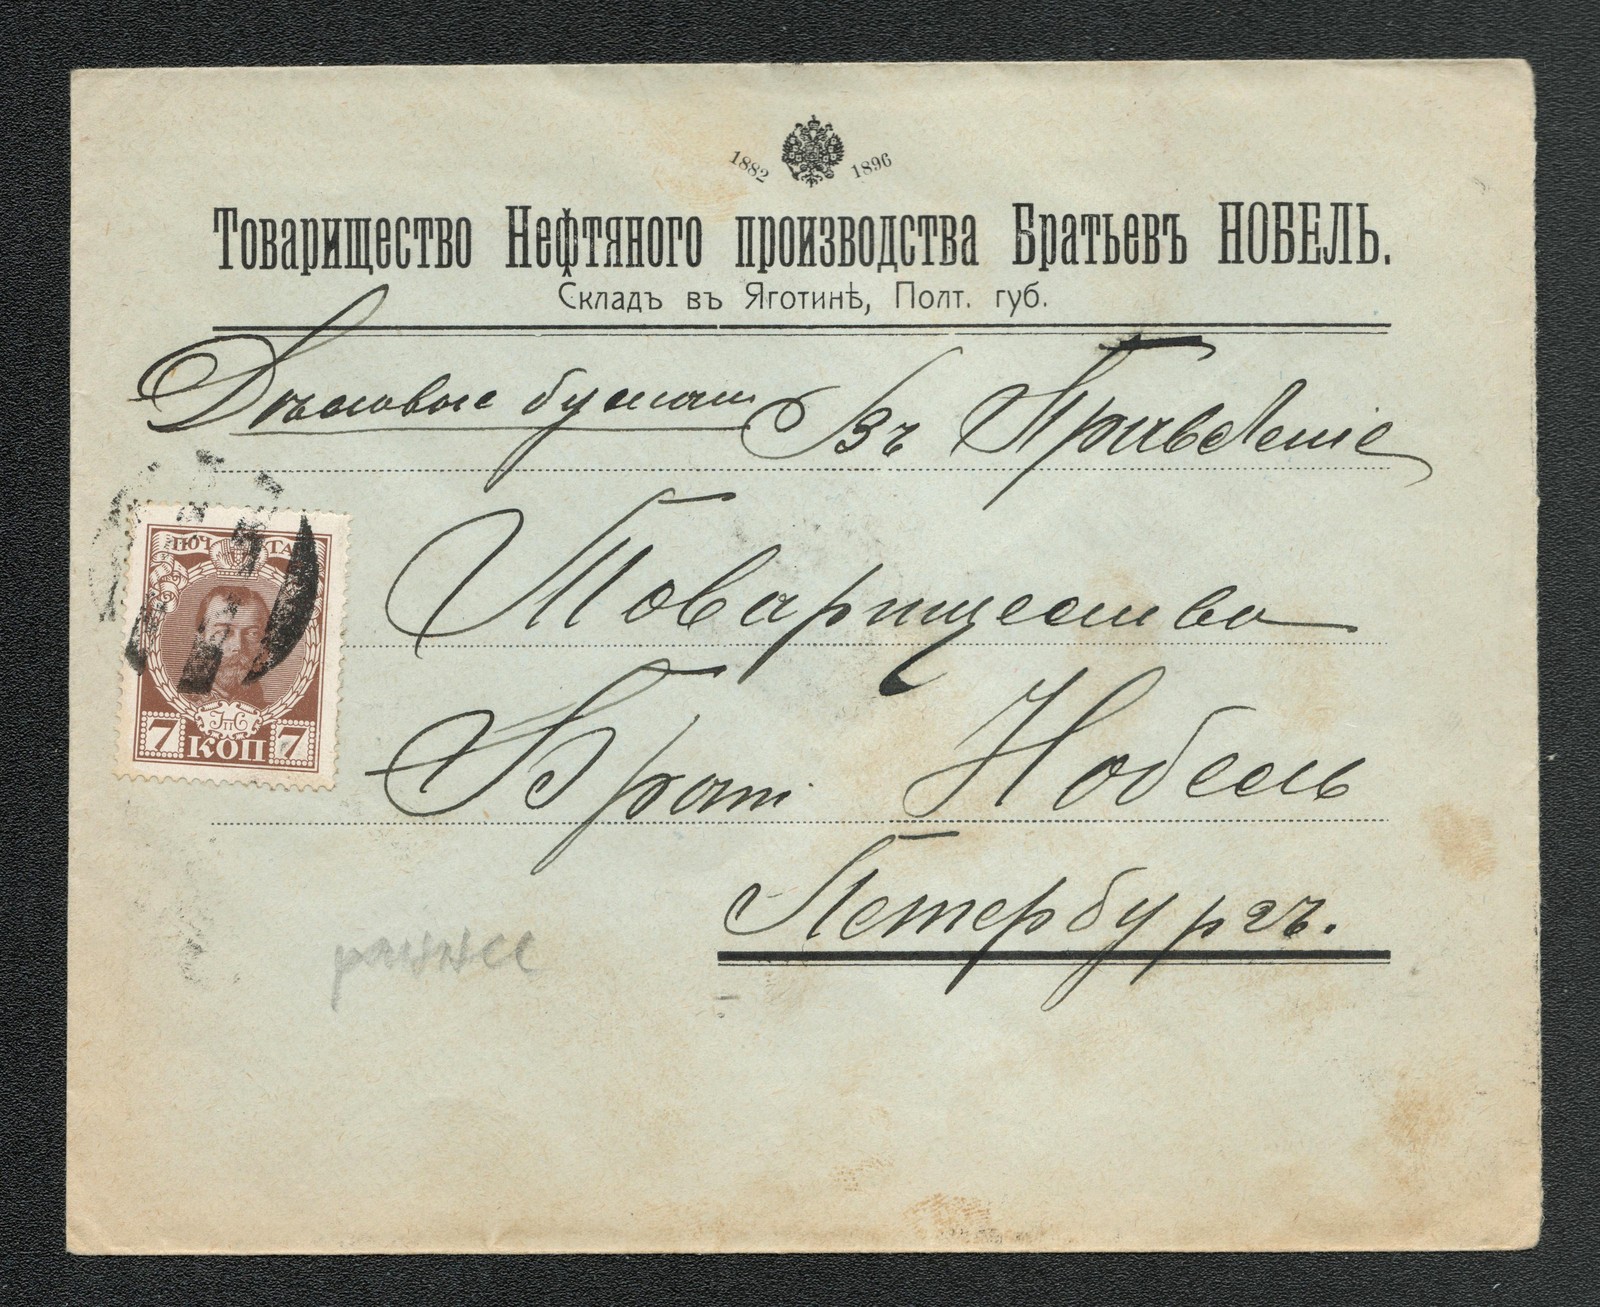 1882 1896
Товарищество Нефтяного производства Братьевъ НОБЕЛЬ.
Складъ въ Яготинѣ, Полт. губ.
Дѣловые бумаги
Въ Правленіе
Товарищества
Брат. Нобель
Петербургъ.
ПОЧТА
7 КОП 7
ранне